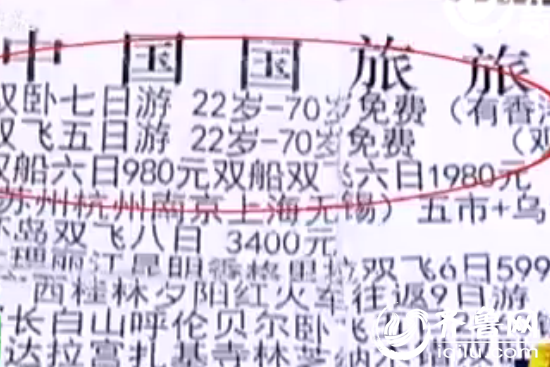 中国国旅旅
双卧七日游 22岁-70岁免费（有香港
双飞五日游 22岁-70岁免费（双
双船六日980元双船双飞六日1980元
苏州杭州南京上海无锡）五市+乌
岛双飞八日 3400元
丽江昆明香格里拉双飞6日599
西桂林夕阳红火车往返9日游
长白山呼伦贝尔卧飞
达拉宫扎基寺林芝纳木错
齐鲁网
iqilu.com